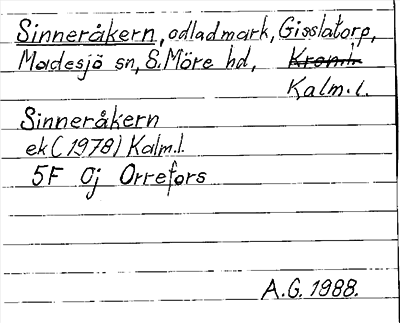 Sinneråkern, odladmark, Gisslatorp,
Madesjö sn, S. Möre hd, Kron.l.
Kalm.l.
Sinneråkern
ek (1978) Kalm.l.
5F 0j Orrefors
A.G. 1988.